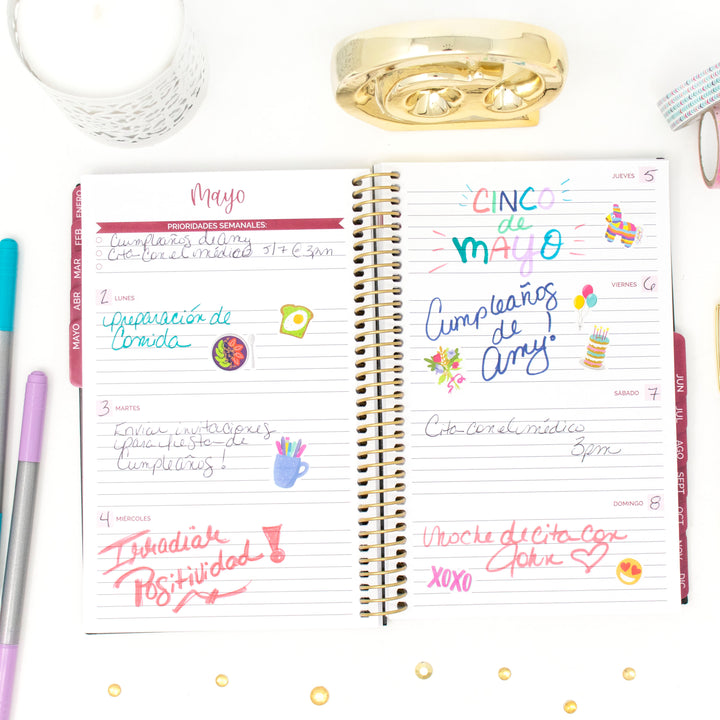 Mayo
PRIORIDADES SEMANALES:
Cumpleaños de Amy
Cita con el médico 5/7 @ 3pm
2 LUNES
preparación de
Comida
3 MARTES
Enviar invitaciones
para fiesta de
Cumpleaños!
4 MIÉRCOLES
Irradiar
Positividad!
ENERO
FEB
MAR
ABR
MAYO
JUEVES 5
CINCO
de
MAYO
VIERNES 6
Cumpleaños
de
Amy!
SÁBADO 7
Cita con el médico
3pm
DOMINGO 8
noche de cita con
John
XOXO
JUN
JUL
AGO
SEPT
OCT
NOV
DIC